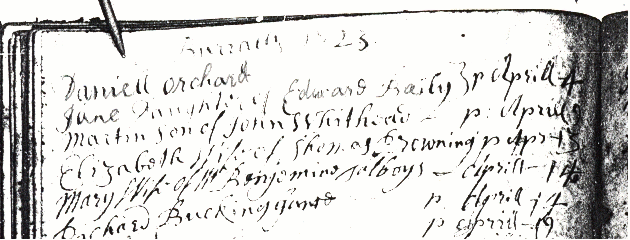 Burialls 1723
Daniell Orchard p Aprill 4
Jane Daughter of Edward Baily p Aprill
Martin Son of John Whithead p Apr
Elizabeth Wife of Thomas Browning Aprill 14
Mary Wife of Mr Benjemine Talboys p Aprill 14
Richard Bucking p Aprill 19